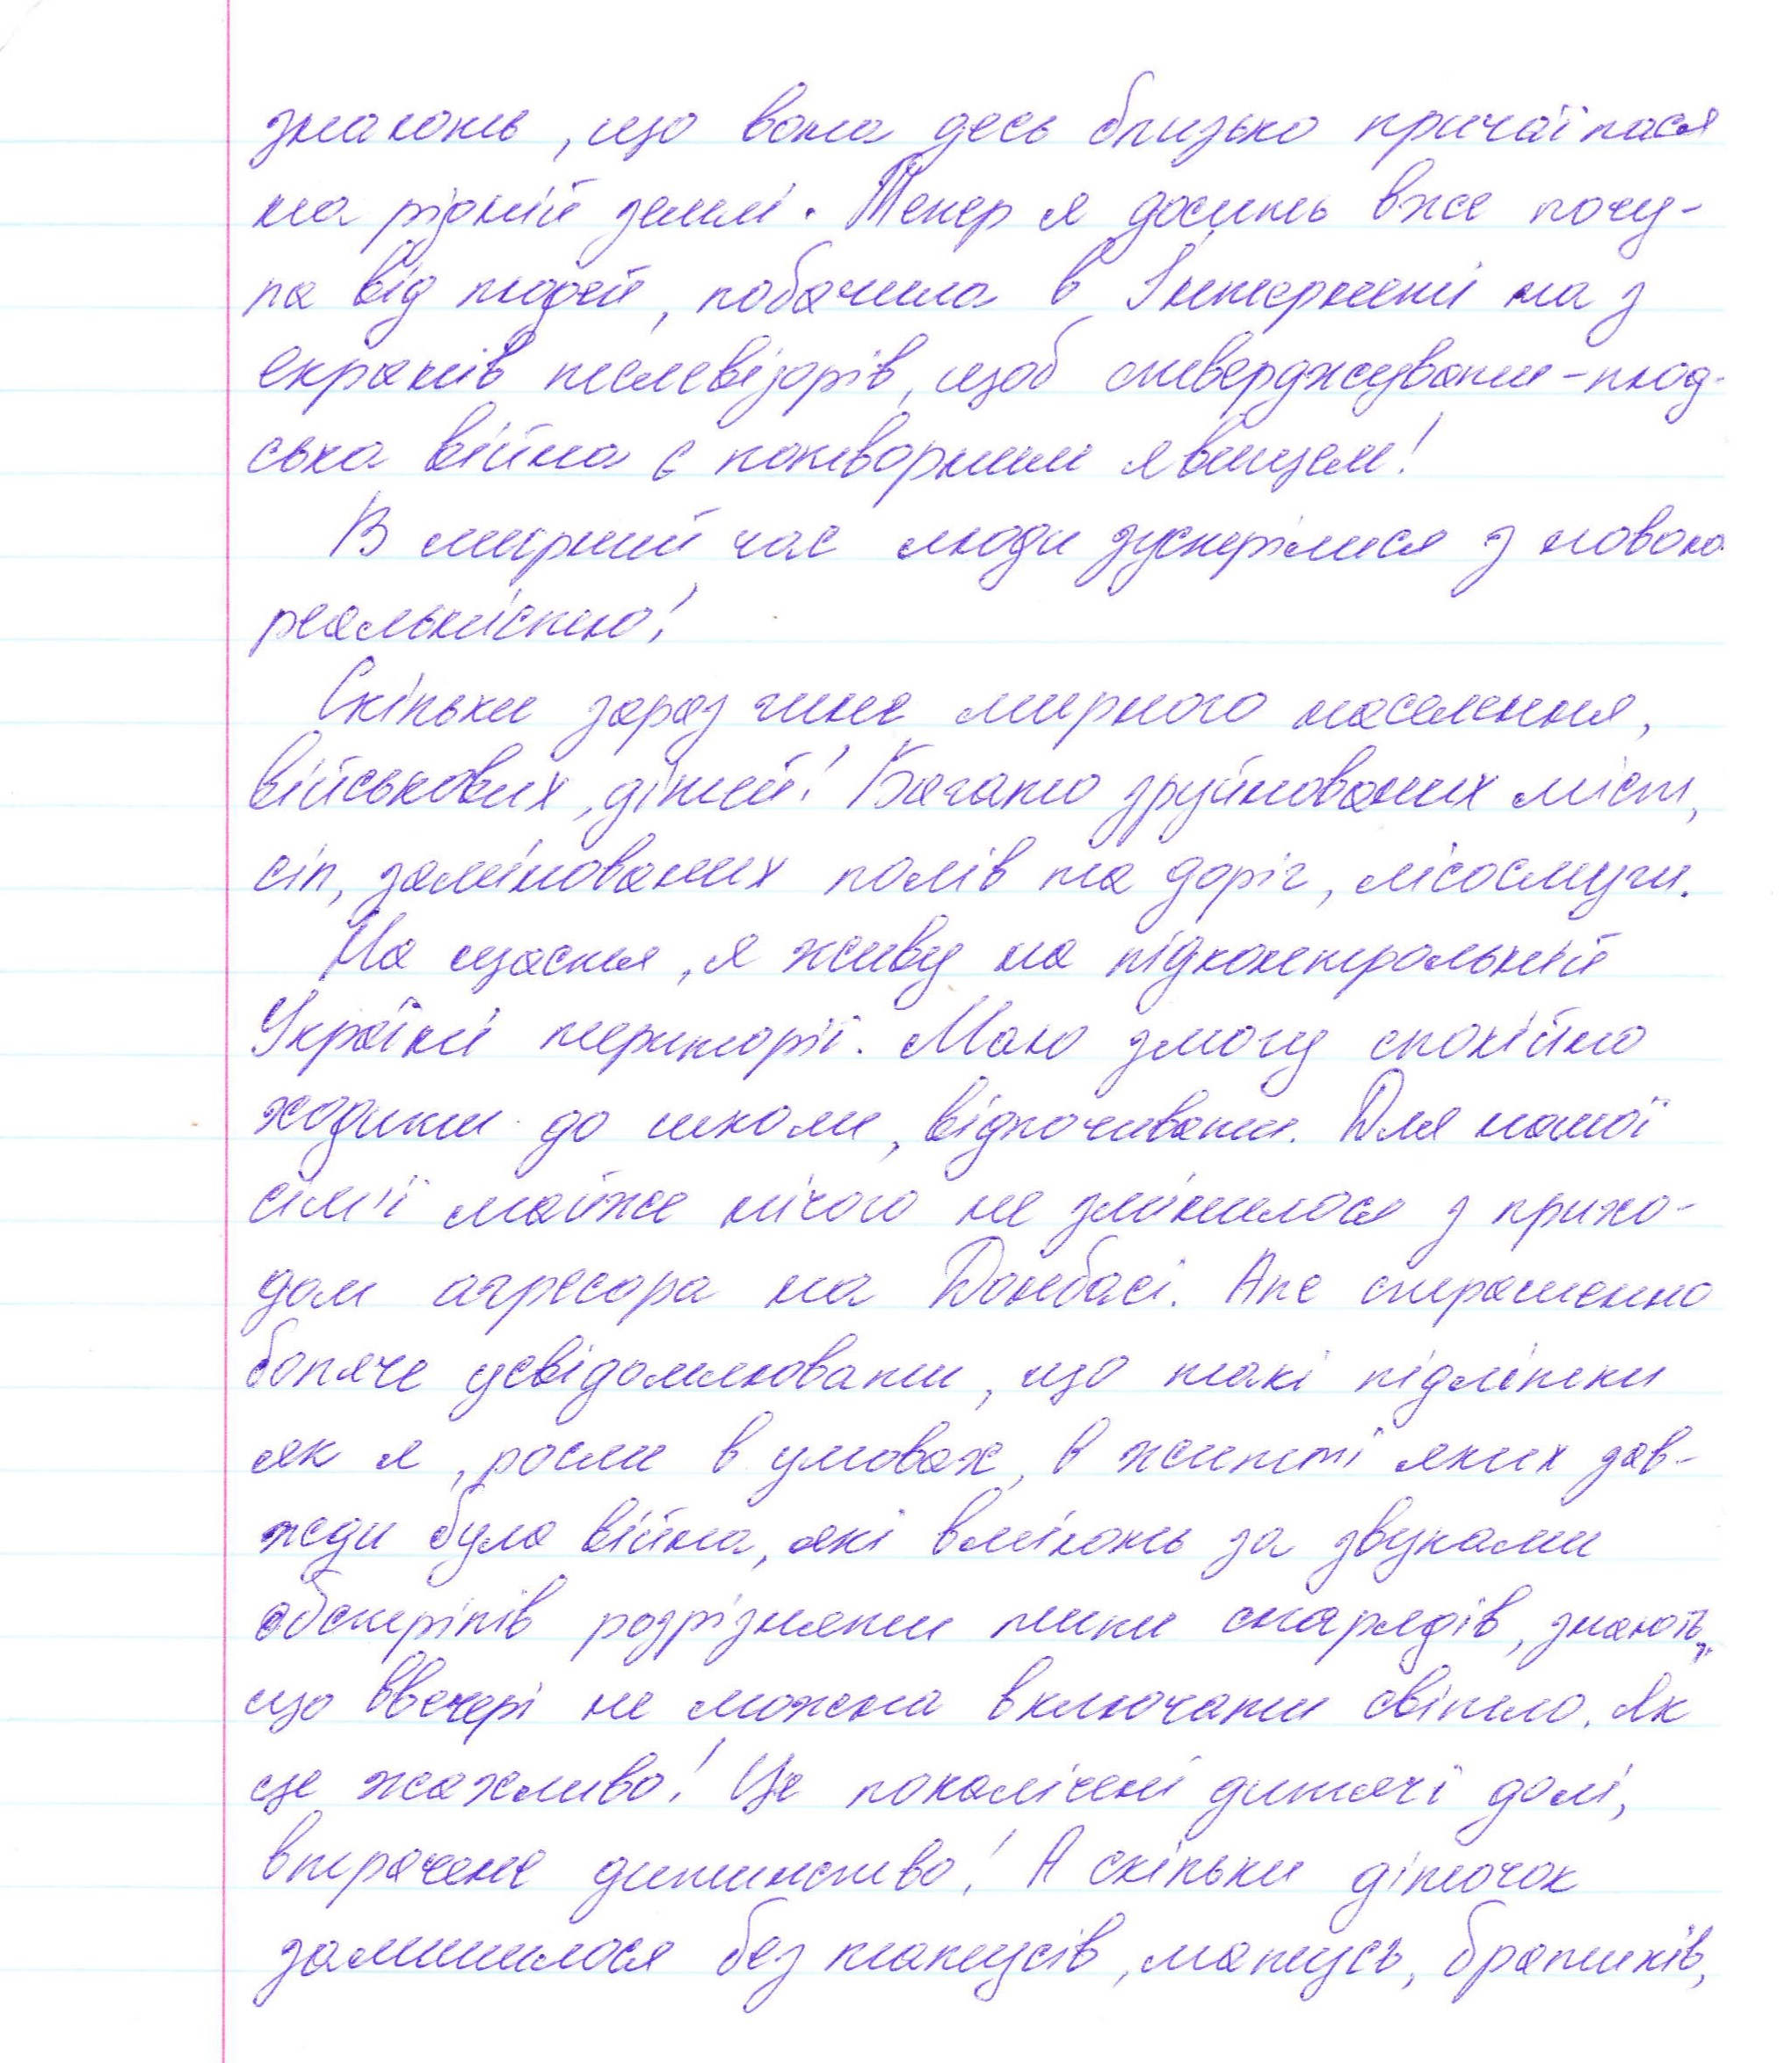 знають, що вона десь близько причаїлася
на рідній землі. Тепер я досить вже почу-
ла від людей, побачила в Інтернеті на з
екранів телевізорів, щоб стверджувати - люд-
ська війна є потворним явищем!
В мирний час люди зустрілися з новою
реальністю!
Скільки зараз гине мирного населення,
військових, дітей! Багато зруйнованих міст,
сіл, замінованих полів та доріг, лісосмуги.
На щастя, я живу на підконтрольній
Україні території. Маю змогу спокійно
ходити до школи, відпочивати. Для нашої
сім'ї майже нічого не змінилося з прихо-
дом агресора на Донбасі. Але страшенно
боляче усвідомлювати, що такі підлітки
як я, росли в умовах, в житті яких зав-
жди була війна, які вміють за звуками
обстрілів розрізняти типи снарядів, знають,
що ввечері не можна включати світло. Як
це жахливо! Це покалічені дитячі долі,
втрачене дитинство! А скільки діточок
залишилося без татусів, матусь, братиків,